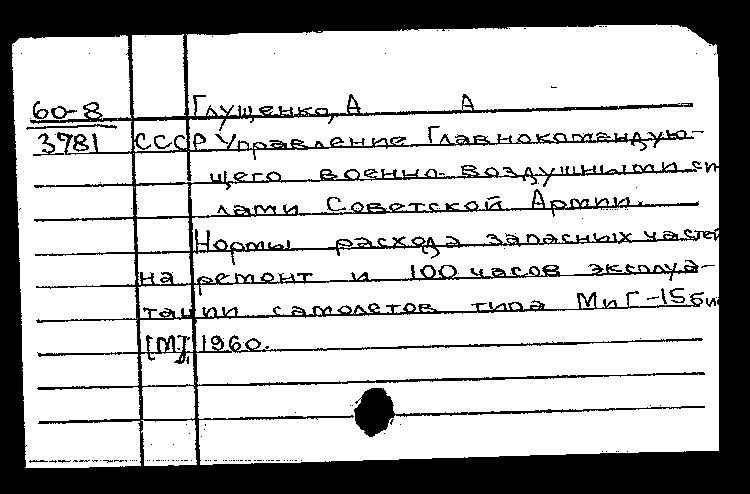 60-8 Глущенко, А А
3781 СССР Управление Главнокомандую-
щего военно-воздушными си
лами Советской Армии.
Нормы расхода запасных частей
на ремонт и 100 часов эксплуа-
тации самолетов типа МиГ-15бис
[М], 1960.